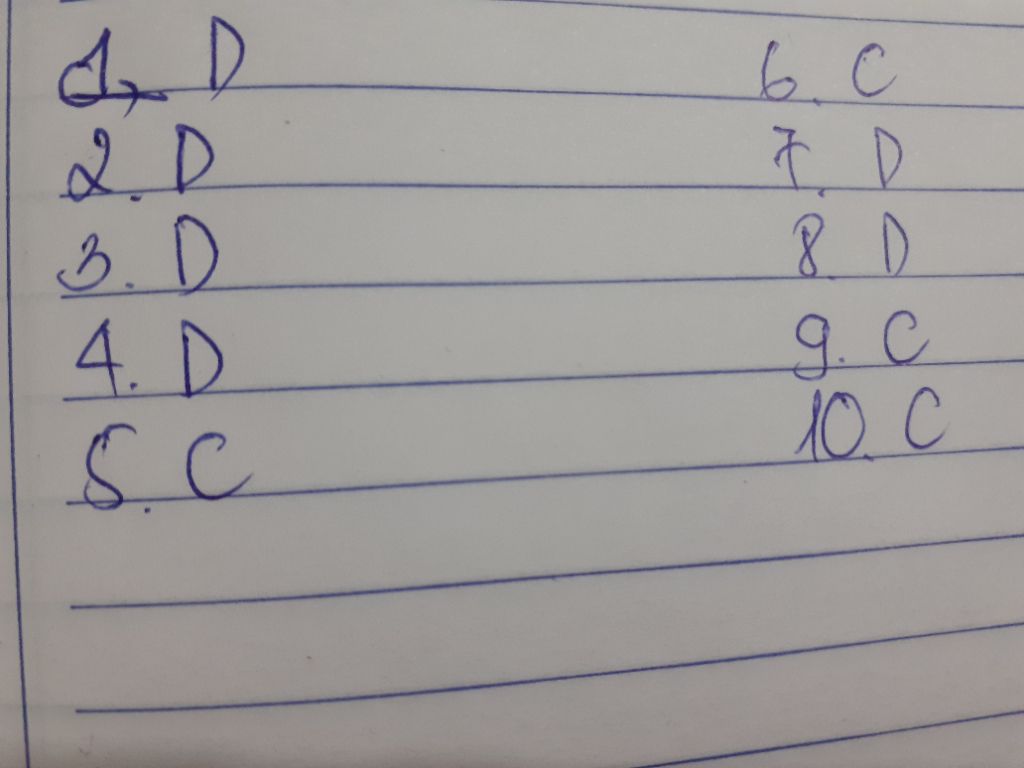 1, D
2. D
3. D
4. D
5. C
6. C
7. D
8. D
9. C
10. C